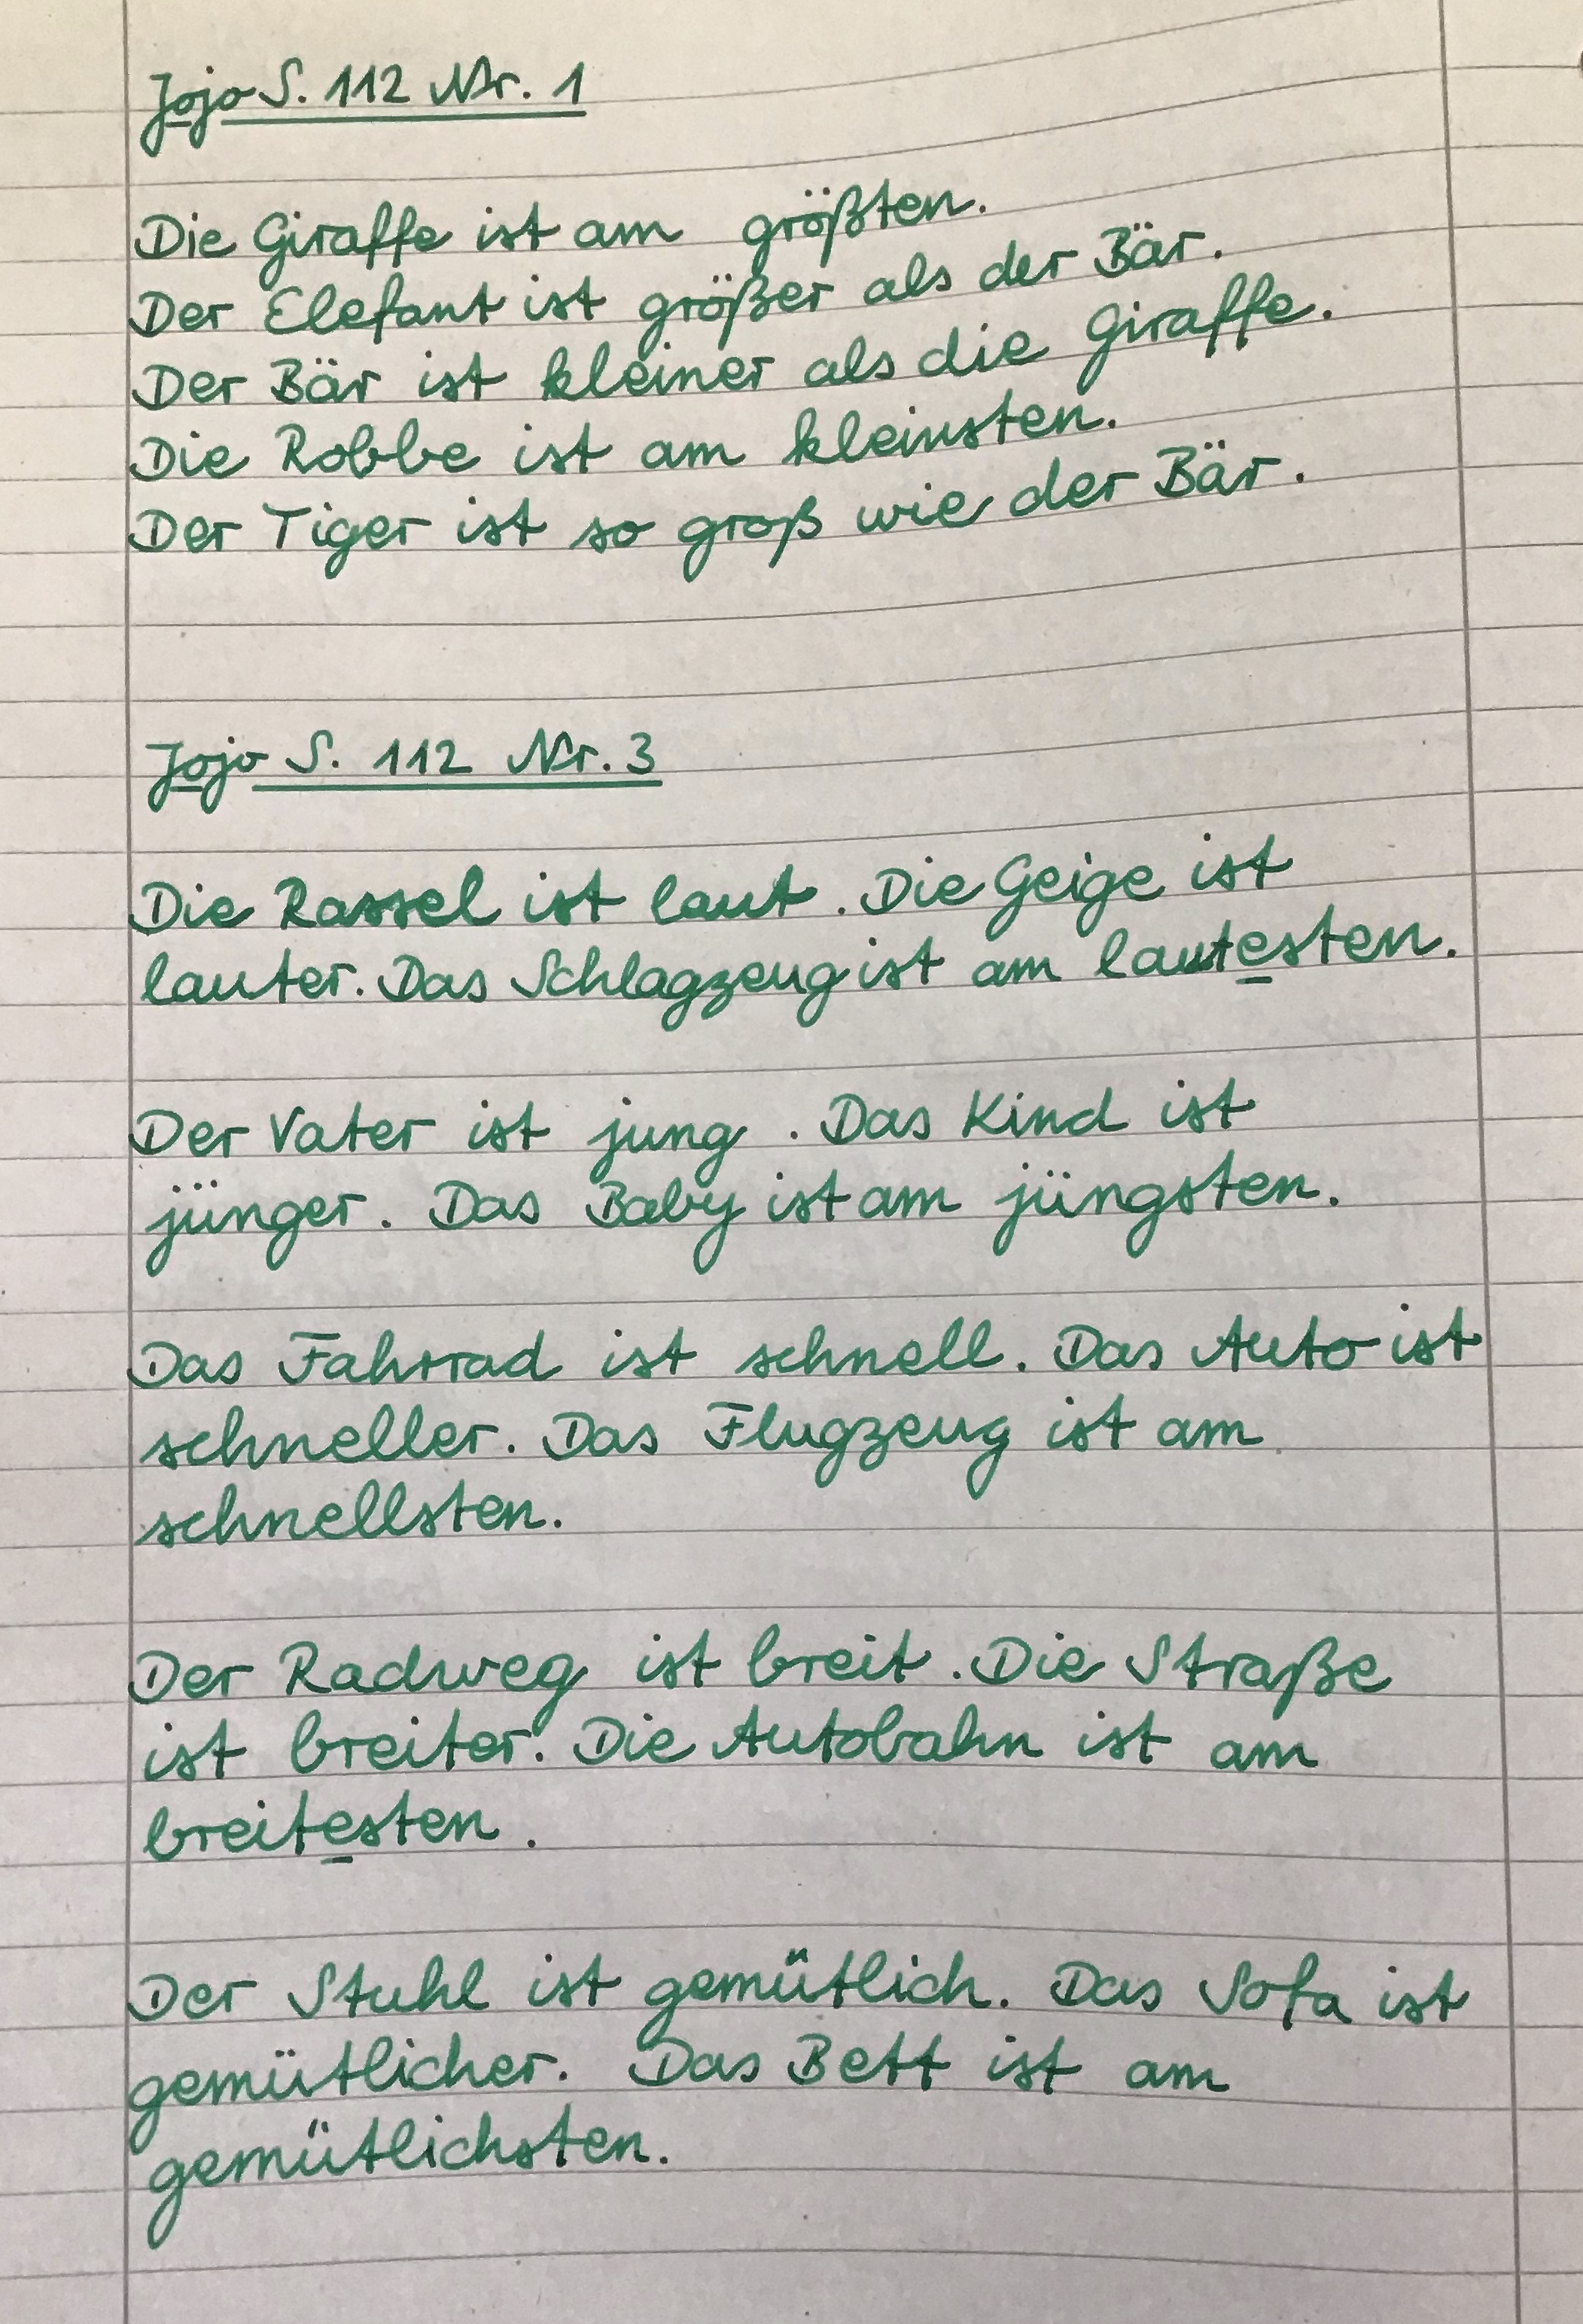 Jojo S. 112 Nr. 1
Die Giraffe ist am größten.
Der Elefant ist größer als der Bär.
Der Bär ist kleiner als die Giraffe.
Die Robbe ist am kleinsten.
Der Tiger ist so groß wie der Bär.
Jojo S. 112 Nr. 3
Die Rassel ist laut. Die Geige ist
lauter. Das Schlagzeug ist am lautesten.
Der Vater ist jung. Das Kind ist
jünger. Das Baby ist am jüngsten.
Das Fahrrad ist schnell. Das Auto ist
schneller. Das Flugzeug ist am
schnellsten.
Der Radweg ist breit. Die Straße
ist breiter. Die Autobahn ist am
breitesten.
Der Stuhl ist gemütlich. Das Sofa ist
gemütlicher. Das Bett ist am
gemütlichsten.